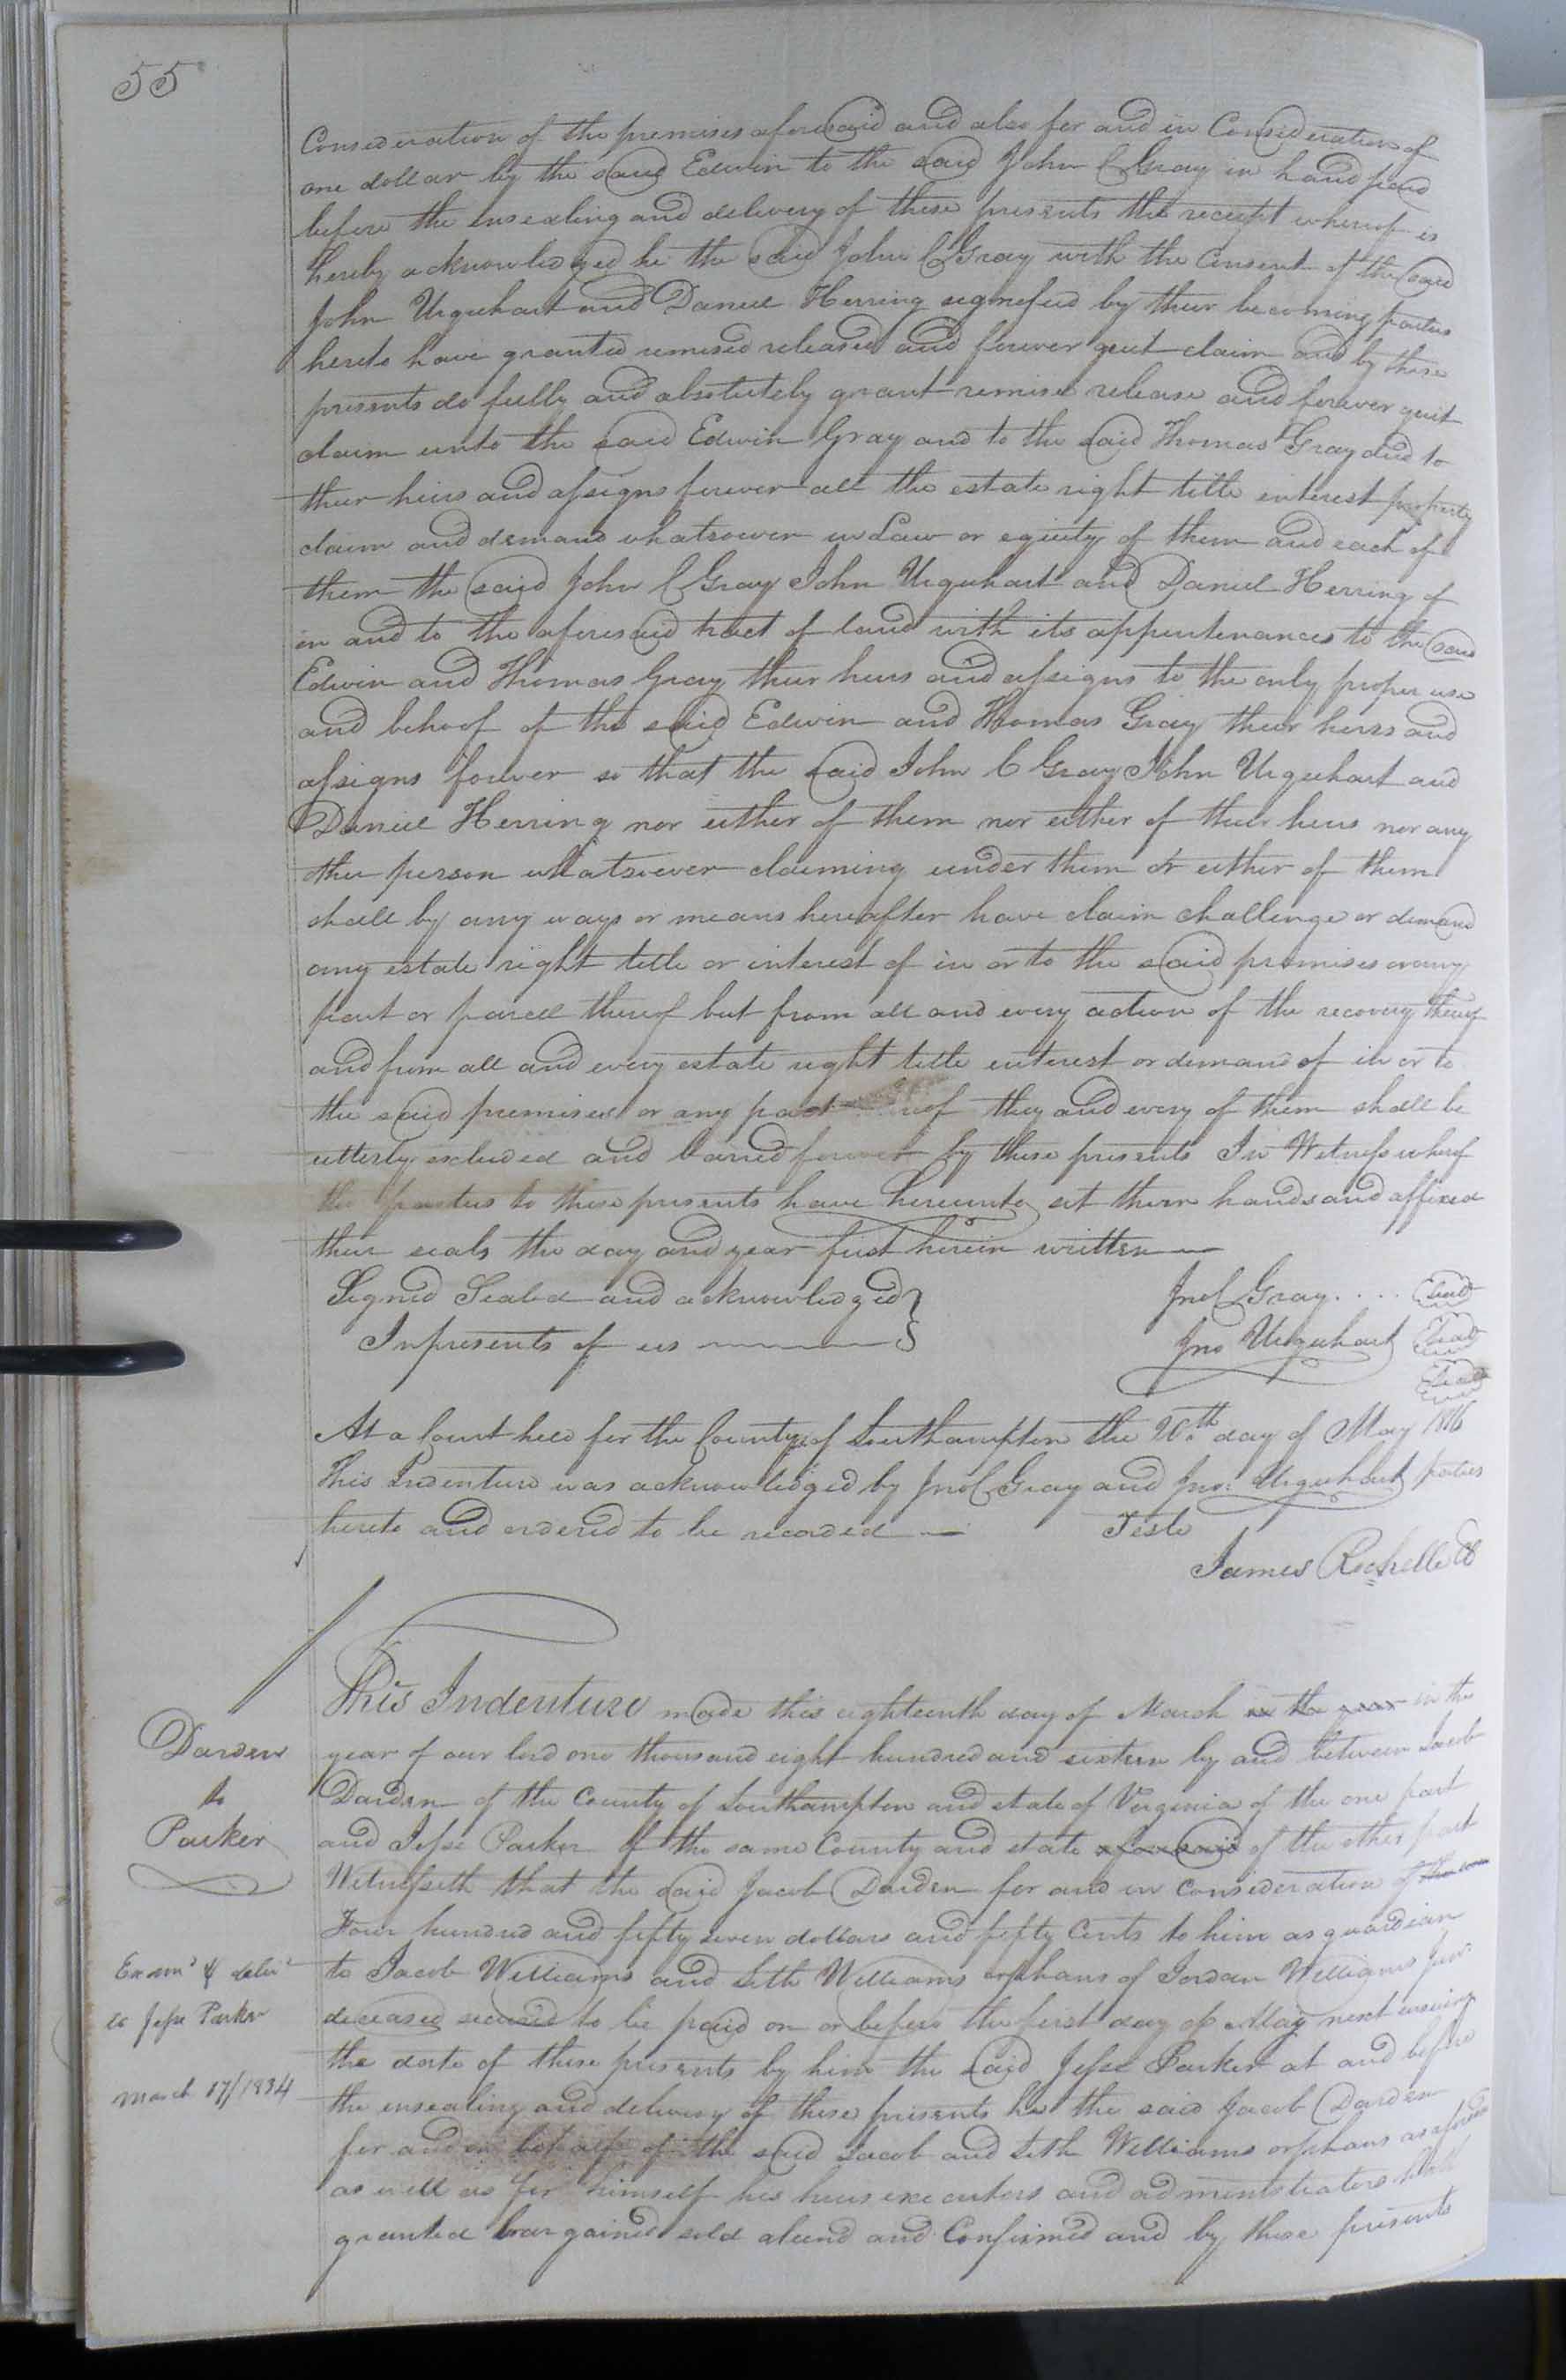 55
Consideration of the premises aforesaid and also for and in Consideration of
one dollar by the said Edwin to the said John C Gray in hand paid
before the ensealing and delivery of these presents the receipt whereof is
hereby acknowledged he the said John C Gray with the Consent of the said
John Urquhart and Daniel Herring signefied by their becoming parties
hereto have granted remised released and forever quit claim and by these
presents do fully and absolutely grant remise release and forever quit
claim unto the said Edwin Gray and to the said Thomas Gray and to
their heirs and assigns forever all the estate right title interest property
claim and demand whatsoever in Law or equity of them and each of
them the said John C Gray John Urquhart and Daniel Herring of
in and to the aforesaid tract of land with its appurtenances to the said
Edwin and Thomas Gray their heirs and assigns to the only proper use
and behoof of the said Edwin and Thomas Gray their heirs and
assigns forever so that the said John C Gray John Urquhart and
Daniel Herring nor either of them nor either of their heirs nor any
other person whatsoever claiming under them or either of them
shall by any ways or means hereafter have claim challenge or demand
any estate right title or interest of in or to the said premises or any
part or parcell thereof but from all and every action of the recovery thereof
and from all and every estate right title interest or demand of in or to
the said premises or any part they and every of them shall be
utterly excluded and barred forever by these presents In Witness whereof
the parties to these presents have hereunto set their hands and affixed
their seals the day and year first herein written
Signed Sealed and acknowledged } Jno C Gray . . . . Seal
In presents of us } Jno Urquhart Seal
Seal
At a Court held for the County of Southampton the 20th day of May 1816
This Indenture was acknowledged by Jno C Gray and Jno: Urquhart parties
hereto and ordered to be recorded Teste
James Rochelle CC
This Indenture made this eighteenth day of March in the year in the
Darden
year of our lord one thousand eight hundred and sixteen by and between Jacob
to
Darden of the County of Southampton and state of Virginia of the one part
Parker
and Jesse Parker of the same County and state aforesaid of the other part
Witnesseth that the said Jacob Darden for and in consideration of
Four hundred and fifty seven dollars and fifty Cents to him as guardian
Examd & delivd
to Jacob Williams and Seth Williams orphans of Jordan Williams Junr
to Jesse Parker
deceased secured to be paid on or before the first day of May next ensuing
the date of these presents by him the said Jesse Parker at and before
March 17/1834
the ensealing and delivery of these presents he the said Jacob Darden
for and in behalf of the said Jacob and Seth Williams orphans as aforesaid
as well as for himself his heirs executors and administrators hath
granted bargained sold aliend and Confirmed and by these presents